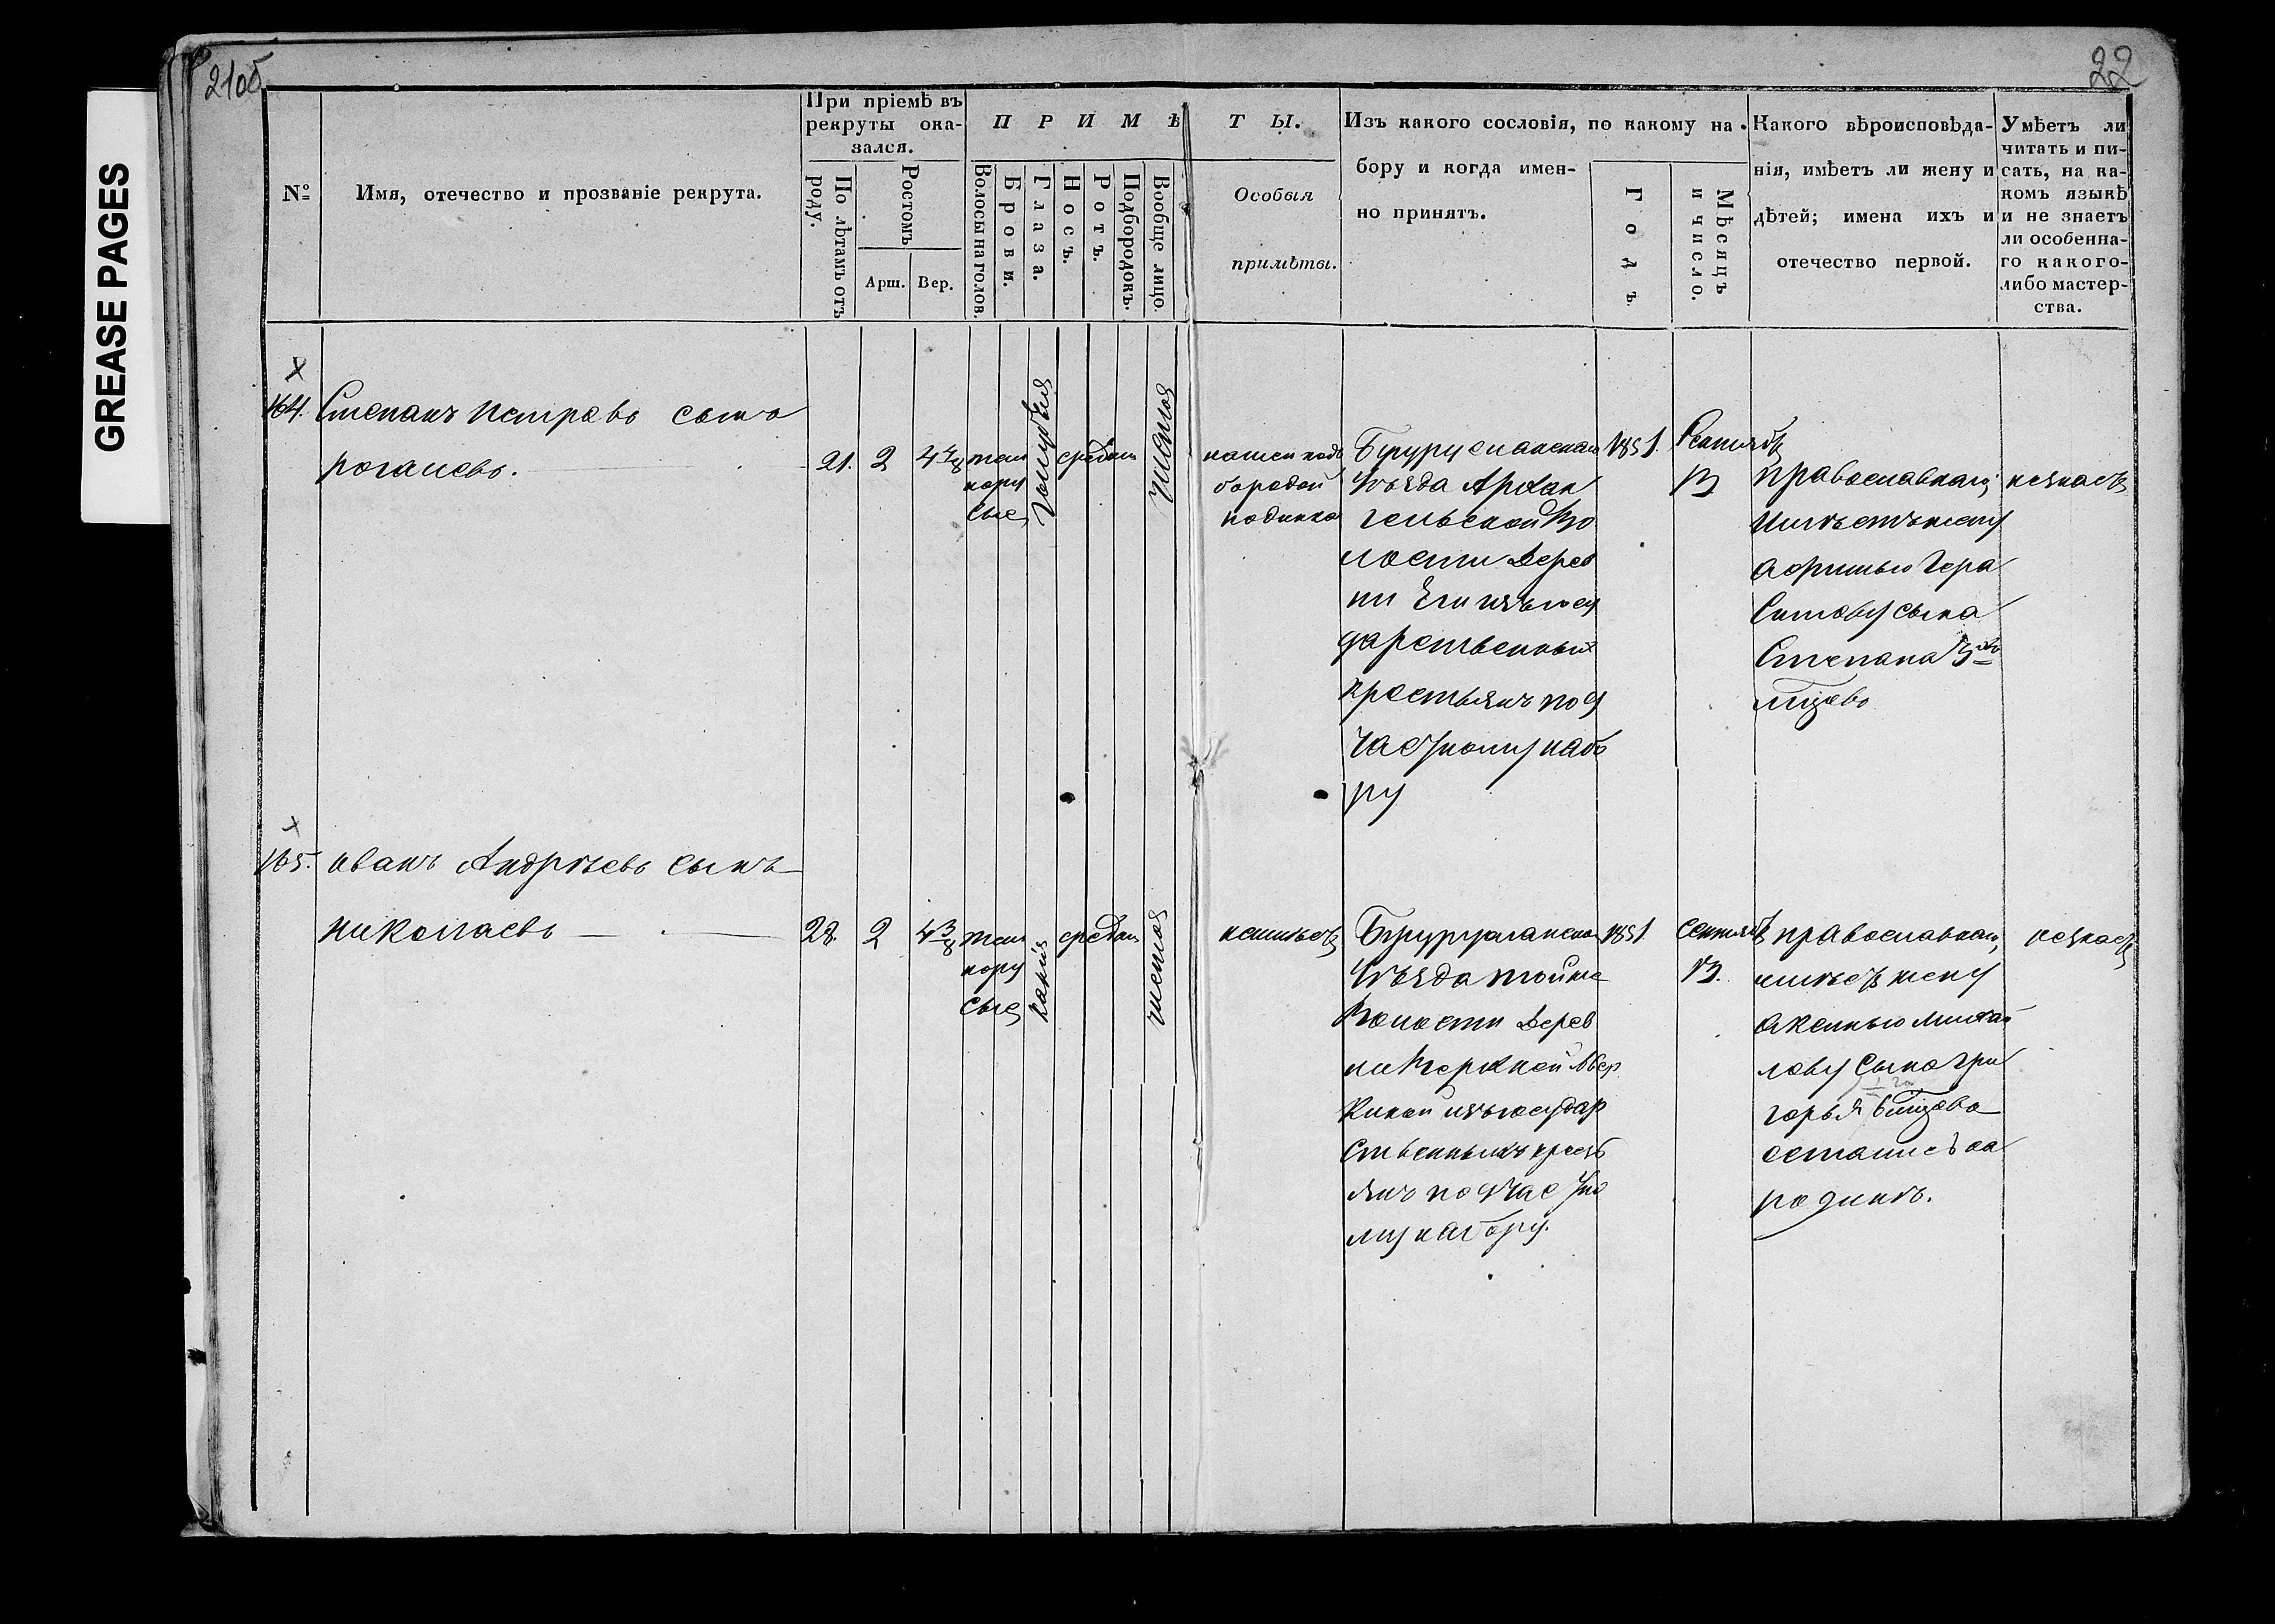 GREASE PAGES
21об
22
№
Имя, отечество и прозваніе рекрута.
При пріемѣ въ
рекруты ока-
зался.
По лѣтамъ отъ
роду.
Ростомъ
Арш.
Вер.
ПРИМѢТЫ.
Волосы на голов.
Брови.
Глаза.
Носъ.
Ротъ.
Подбородокъ.
Вообще лицо.
Особыя
примѣты.
Изъ какого сословія, по какому на-
бору и когда имен-
но принятъ.
Годъ.
Мѣсяцъ
и число.
Какого вѣроисповѣда-
нія, имѣетъ ли жену и
дѣтей; имена ихъ и
отечество первой.
Умѣетъ ли
читать и пи-
сать, на ка-
комъ языкѣ
и не знаетъ
ли особенна-
го какого-
либо мастер-
ства.
X
164. Степанъ Петровъ сынъ
рогачевъ.
21. 2 4
тем
нору
сые
голубыя
средн
чистое
бородой
Бугурусланскаго
уѣзда Архан
гельской Во
лости Дерев
ни
дарственныхъ
крестьянъ под
частному набо
ру
1851.
Сентяб
13
православнаго
имѣетъ жену
Афимью Гера
симову сына
Степана
мѣсяцовъ
незнаетъ
X
165. иванъ Андрѣевъ сынъ
николаевъ
28. 2 4 3/8
тем
нору
сые
карія
средн
чистое
неимѣетъ
Бугурусланска
уѣзда тойже
Волости Дерев
ни
изъ государ
ственныхъ кресть
янъ под час тно
му набору.
1851
Сентяб
13.
православнаго,
имѣетъ жену
Аксинью Михай
лову сына Гри
горья
остались на
родинѣ.
незнаетъ